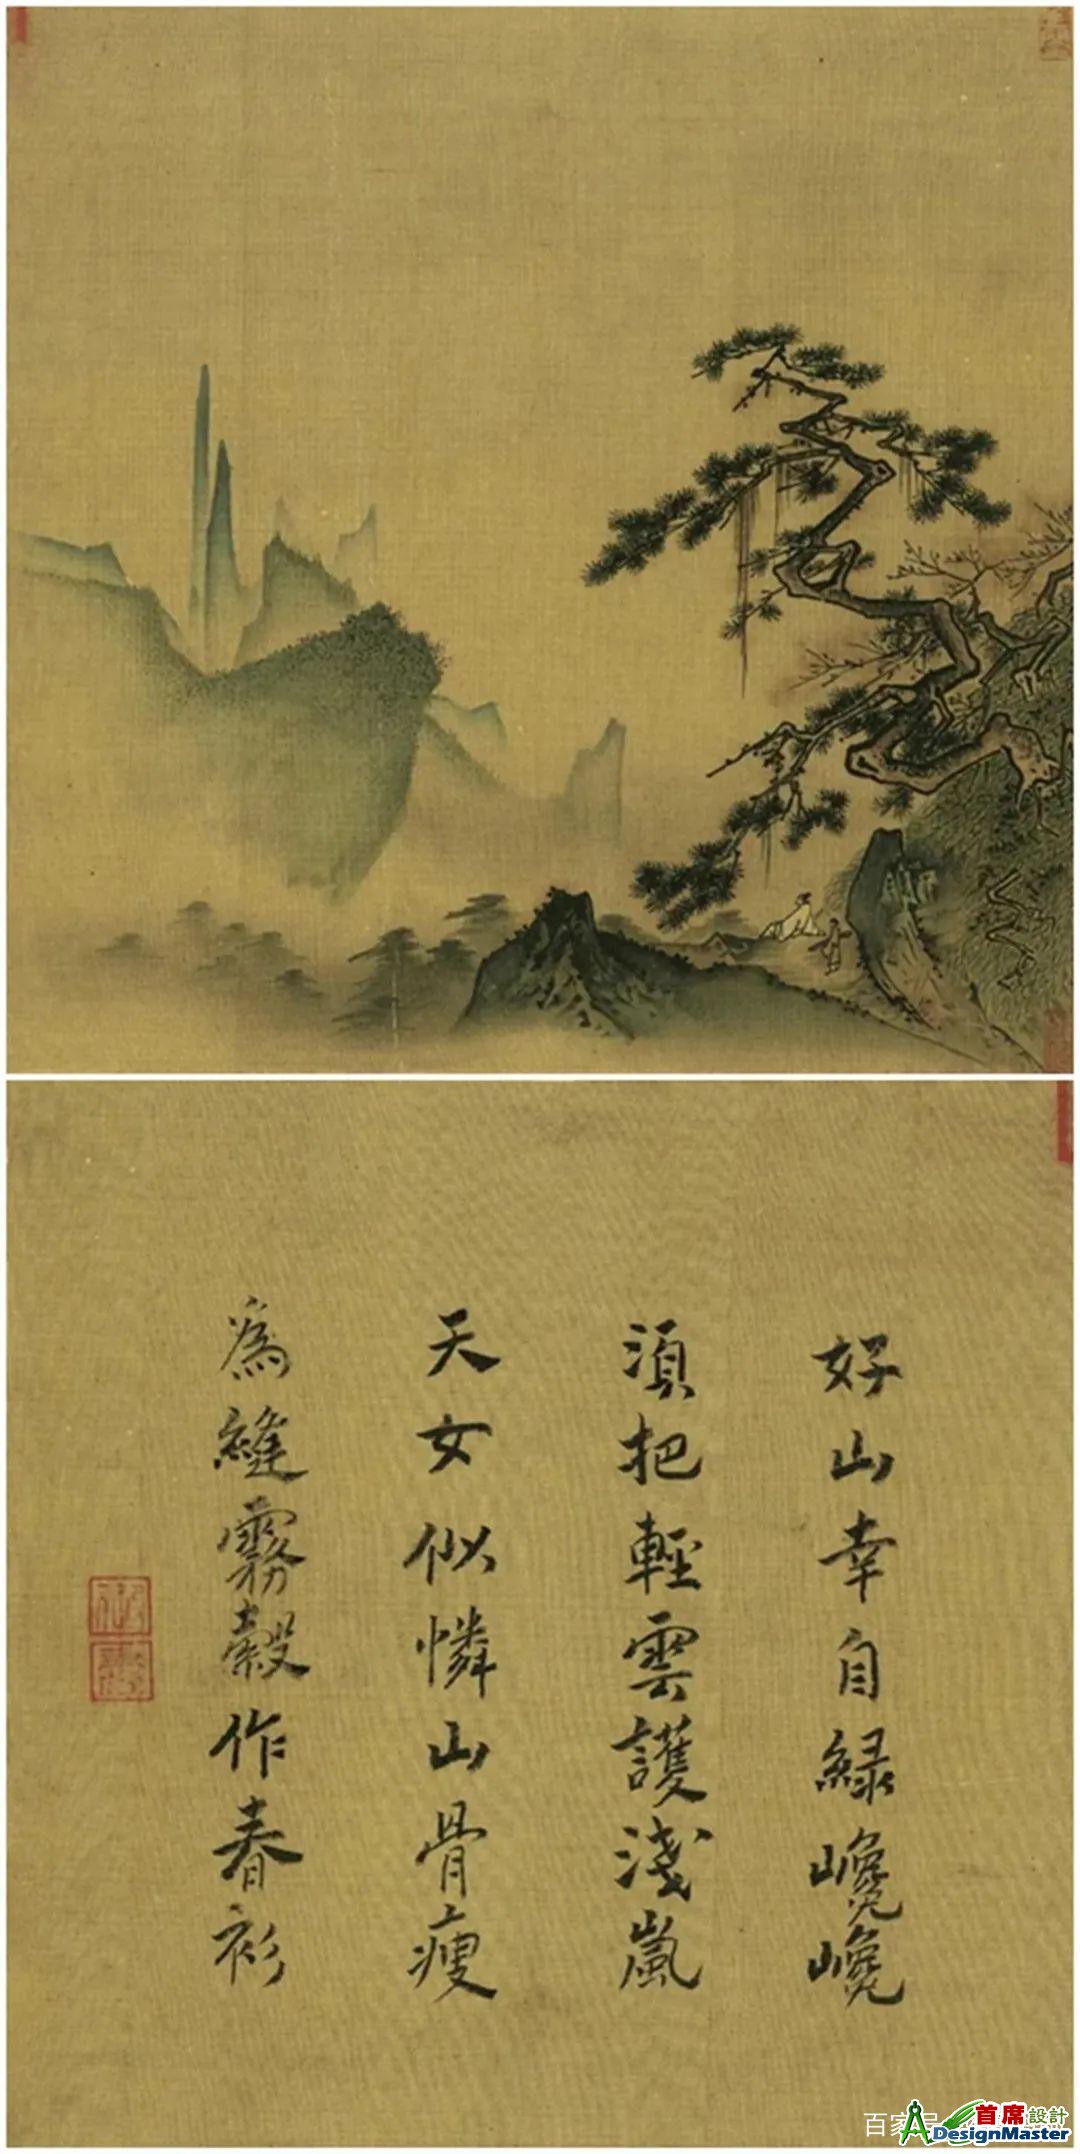 好山幸自緑巉巉
須把輕雲護淺嵐
天女似憐山骨瘦
為縫霧縠作春衫
百家号
首席設計
DesignMaster